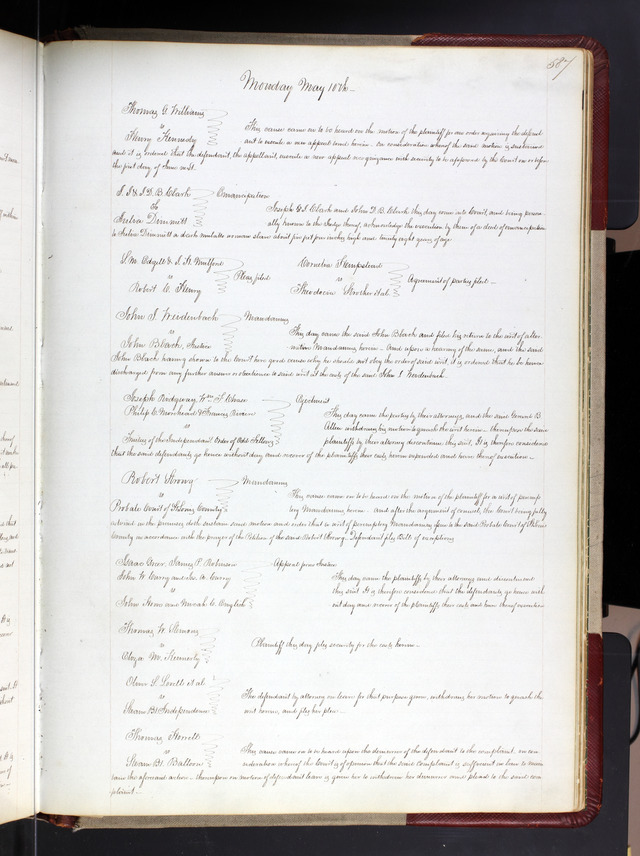 587
Monday May 10th
Thomas G. Williams
vs
Henry Kennedy
This cause came on to be heard on the motion of the plaintiff for an order requiring the defend-
ant to execute a new appeal bond herein. On consideration whereof the said motion is sustained
and it is ordered that the defendant, the appellant, execute a new appeal recognizance with security to be approved by the Court on or before
the first day of June next.
J. G & J. D. B. Clark
to
Julia Dermitt
Emancipation
Joseph G. J. Clark and John D. B. Clark this day come into Court, and being person-
ally known to the Judge thereof, acknowledge the execution by them of a deed of emancipation
to Julia Dermitt a dark mulatto woman slave about five feet five inches high and twenty eight years of age
L. M. Edgell & J. H. Mulford
vs
Robert C. Henry
Pleas filed
Cornelia Hempstead
vs
Theodocia Strother et al
Agreement of parties filed
John I. Weidenbach
vs
John Black, Justice
Mandamus
This day came the said John Black and filed his return to the writ of alter-
native Mandamus herein. And upon a hearing of the same, and the said
John Black having shown to the Court here good cause why he should not obey the order of said writ, it is ordered that he be hence
discharged from any further answer or obedience to said writ at the costs of the said John I. Weidenbach.
Joseph Ridgeway, Wm S.
Philip C. Morehead & Francis Brown
vs
Trustees of the Independent Order of Odd Fellows
Ejectment
This day came the parties by their attorneys, and the said Gerard B.
Allen withdraws his motion to quash the writ herein. Thereupon the said
plaintiffs by their attorney discontinue this suit. It is therefore considered
that the said defendants go hence without day and recover of the plaintiffs their costs herein expended and have thereof execution
Robert Strong
vs
Probate Court of St Louis County
Mandamus
This cause came on to be heard on the motion of the plaintiff for a writ of peremp-
tory Mandamus herein. And after the argument of counsel, the Court being fully
advised in the premises doth sustain said motion and order that a writ of peremptory Mandamus issue to the said Probate Court of St Louis
County in accordance with the prayer of the Petition of the said Robert Strong. Defendant files Bill of exceptions
Isaac Grier, James P. Robinson
John W. Curry and A. Curry
vs
John Stone and Micah C. English
Appeal from Justice
This day came the plaintiffs by their attorney and discontinued
this suit. It is therefore considered that the defendants go hence with-
out day and recover of the plaintiffs their costs and have thereof execution
Thomas W. Stemons
vs
Eliza M. Kennerly
Plaintiff this day files security for the costs herein
Oliver D. et al
vs
Steam Bt Independence
The defendant by attorney on leave for that purpose given, withdraws her motion to quash the
writ herein, and files her plea
Thomas
vs
Steam Bt Balloon
This cause came on to be heard upon the demurrer of the defendant to the complaint, on con-
sideration whereof the Court is of opinion that the said complaint is sufficient in law to main-
tain the aforesaid action. Thereupon on motion of defendant leave is given her to withdraw her demurrer and plead to the said com-
plaint